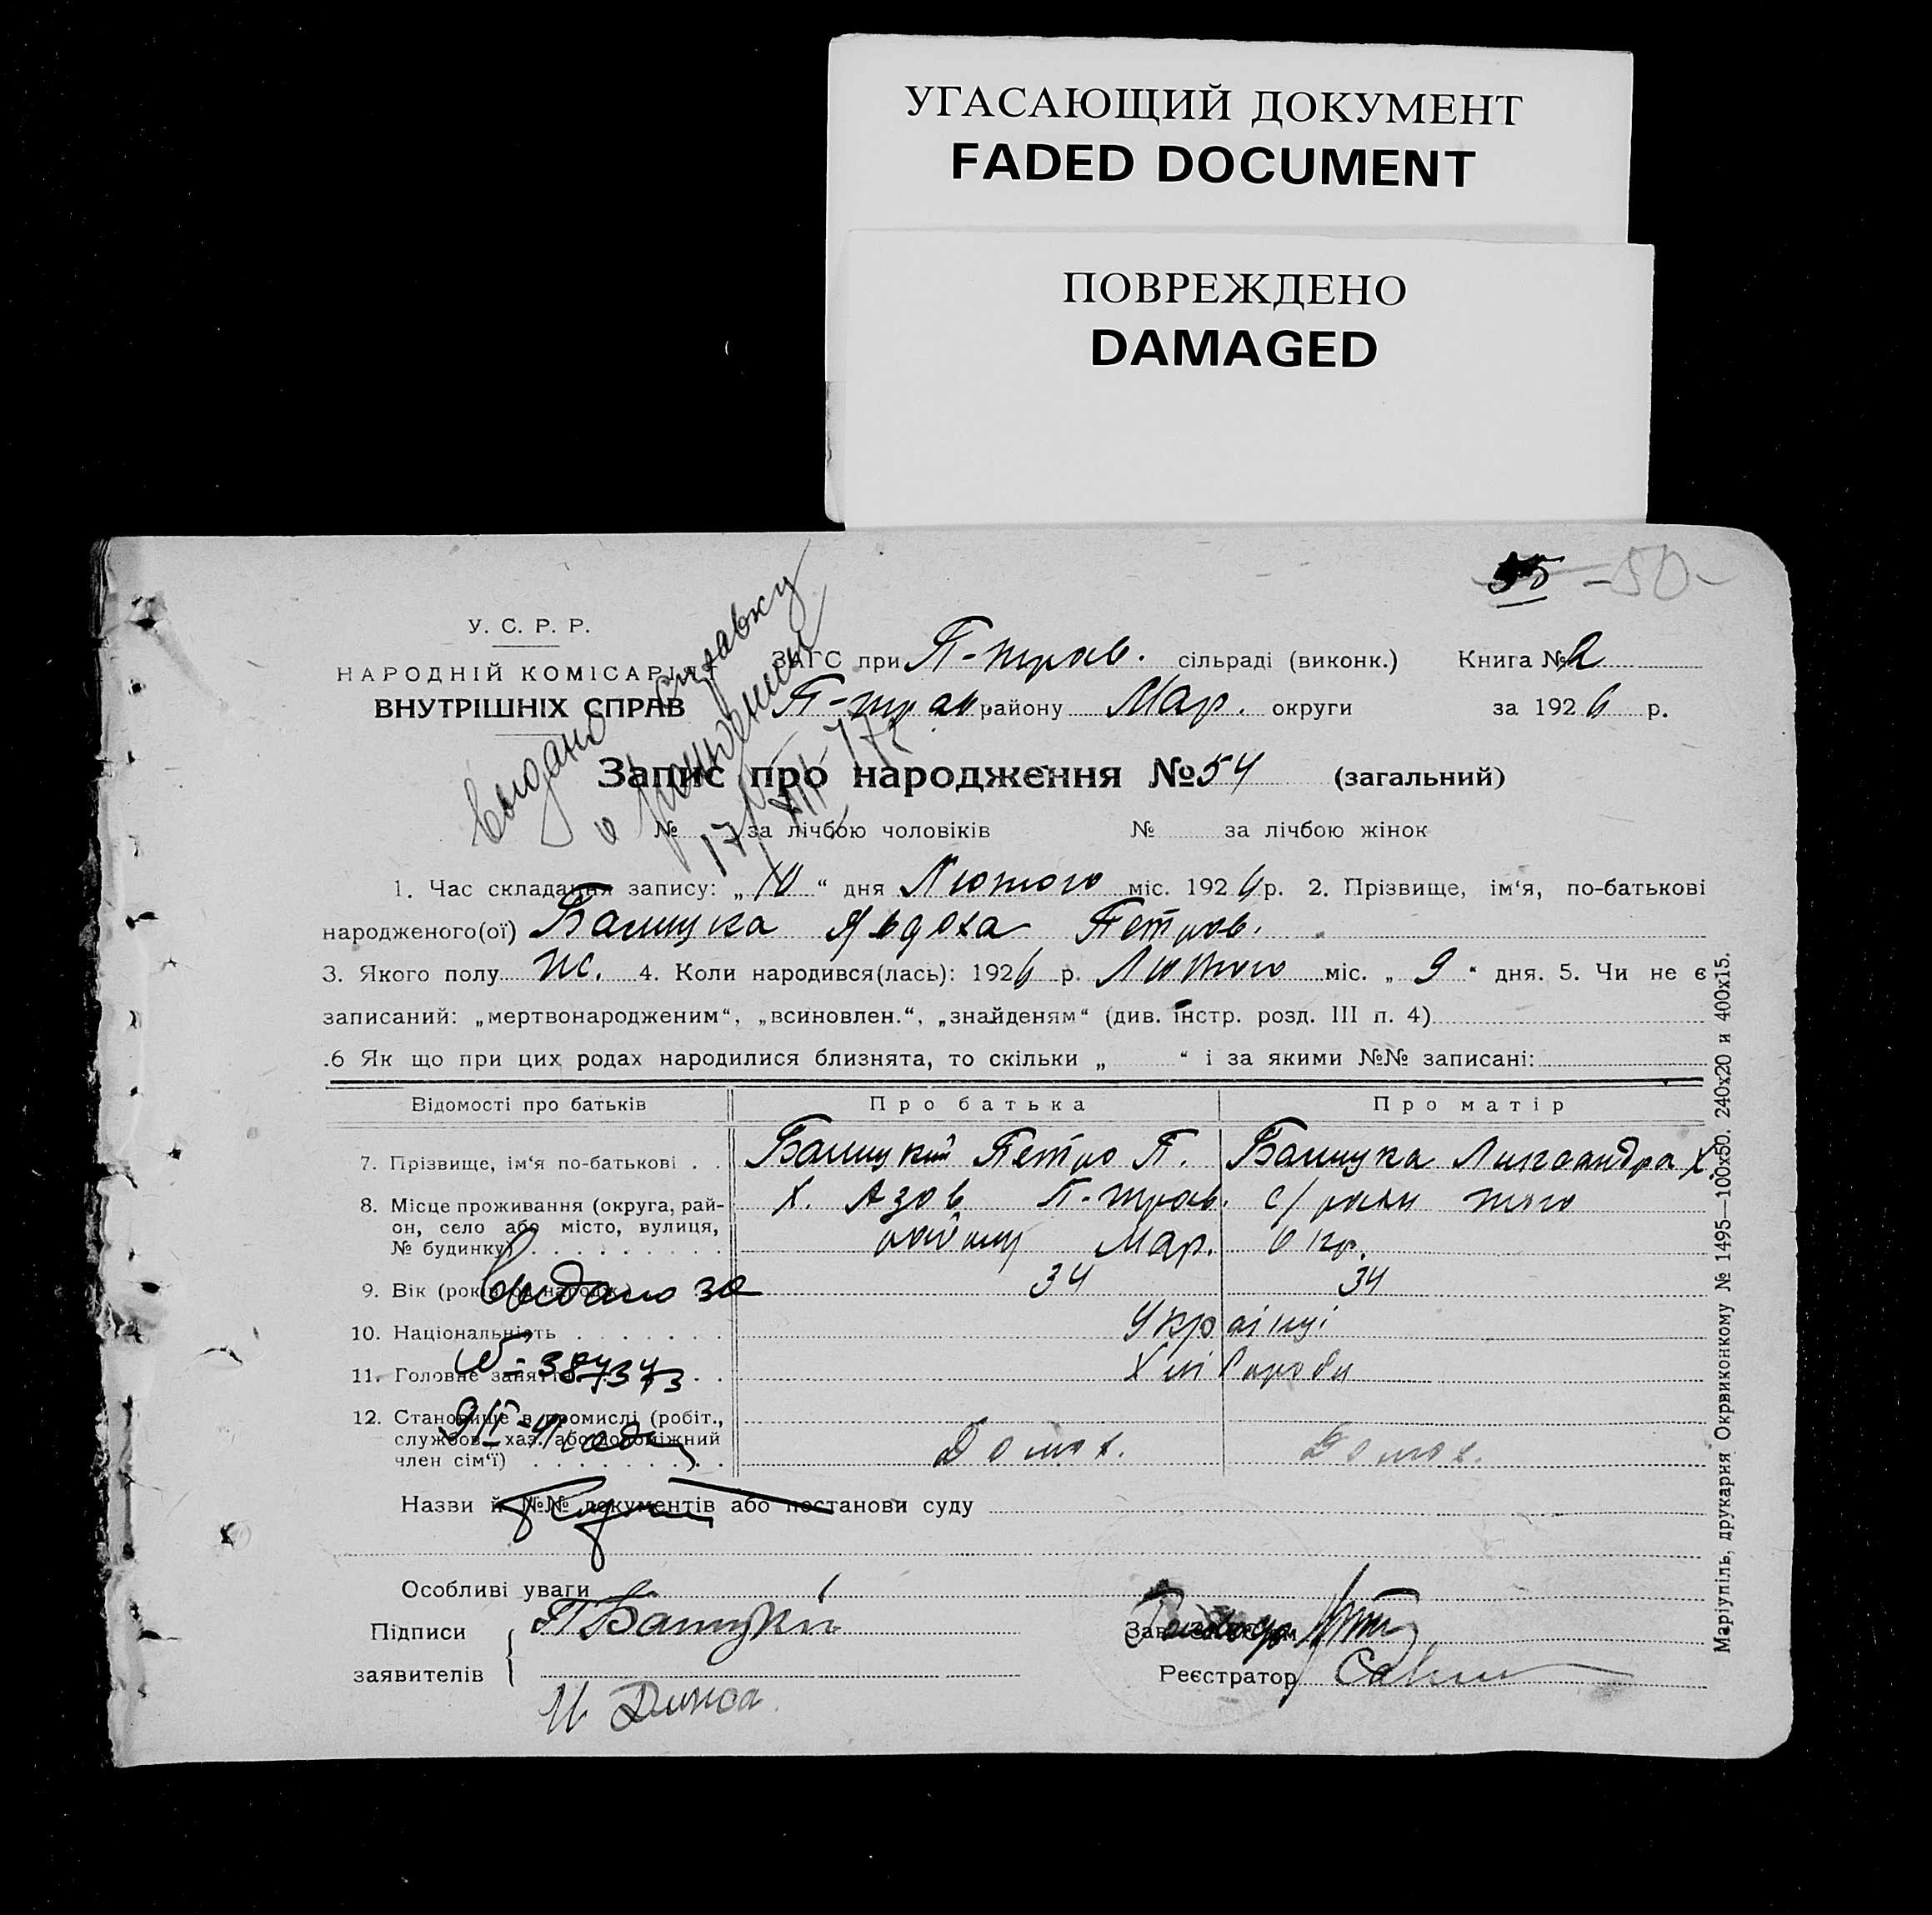 УГАСАЮЩИЙ ДОКУМЕНТ
FADED DOCUMENT
ПОВРЕЖДЕНО
DAMAGED
-50-
У. С. Р. Р.
НАРОДНІЙ КОМІСАРІЯТ
ВНУТРІШНІХ СПРАВ
ЗАГС при П-трав. сільраді (виконк.) Книга № 2
П-трав. району Мар. округи за 1926 р.
Выдано справку
о рождении
17/XII
Запис про народження № 54 (загальний)
№ за лічбою чоловіків № за лічбою жінок
1. Час складання запису: „10“ дня Лютого міс. 1926 р. 2. Прізвище, ім‘я, по-батькові
народженого(ої) Балицка Явдоха Петров.
3. Якого полу ж. 4. Коли народився(лась): 1926 р. Лютого міс. „9“ дня. 5. Чи не є
записаний: „мертвонародженим“, „всиновлен.“, „знайденям“ (див. інстр. розд. III п. 4)
.6 Як що при цих родах народилися близнята, то скільки „ “ і за якими №№ записані:
Відомості про батьків Про батька Про матір
7. Прізвище, ім‘я по-батькові . . Балицкий Петро П. Балицка Лигсандра Х.
8. Місце проживання (округа, рай- Х. Азов П-трав. с/ради того
он, село або місто, вулиця, району Мар. окр.
№ будинку) . . . . . . . . .
9. Вік (років од народж.) 34 34
Выдано
10. Національність . . . . . . . Українці
11. Головне заняття . . Хліборобы
387373
12. Становище в промислі (робіт.,
службов., хаз. або допоміжний
член сім‘ї) . . . . . . . . . Домог. Домог.
Назви й №№ документів або постанови суду
Особливі уваги
Підписи П Балицкий Зав.
заявителів Реєстратор
Маріупіль, друкарня Окрвиконкому № 1495—100х50. 240х20 и 400х15.